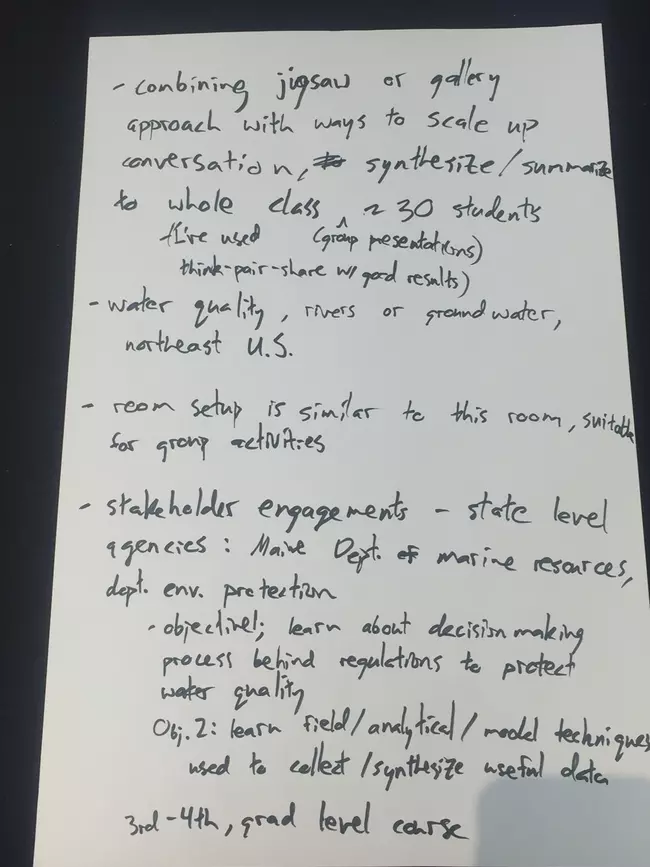 - combining jigsaw or gallery
approach with ways to scale up
conversation, synthesize/summarize
to whole class ~ 30 students
(I've used (group presentations)
think-pair-share w/ good results)
- water quality, rivers or groundwater,
northeast U.S.
- room setup is similar to this room, suitable
for group activities
- stakeholder engagements - state level
agencies: Maine Dept. of marine resources,
dept. env. protection
• objective1: learn about decision making
process behind regulations to protect
water quality
Obj. 2: learn field/analytical/model techniques
used to collect/synthesize useful data
3rd-4th, grad level course